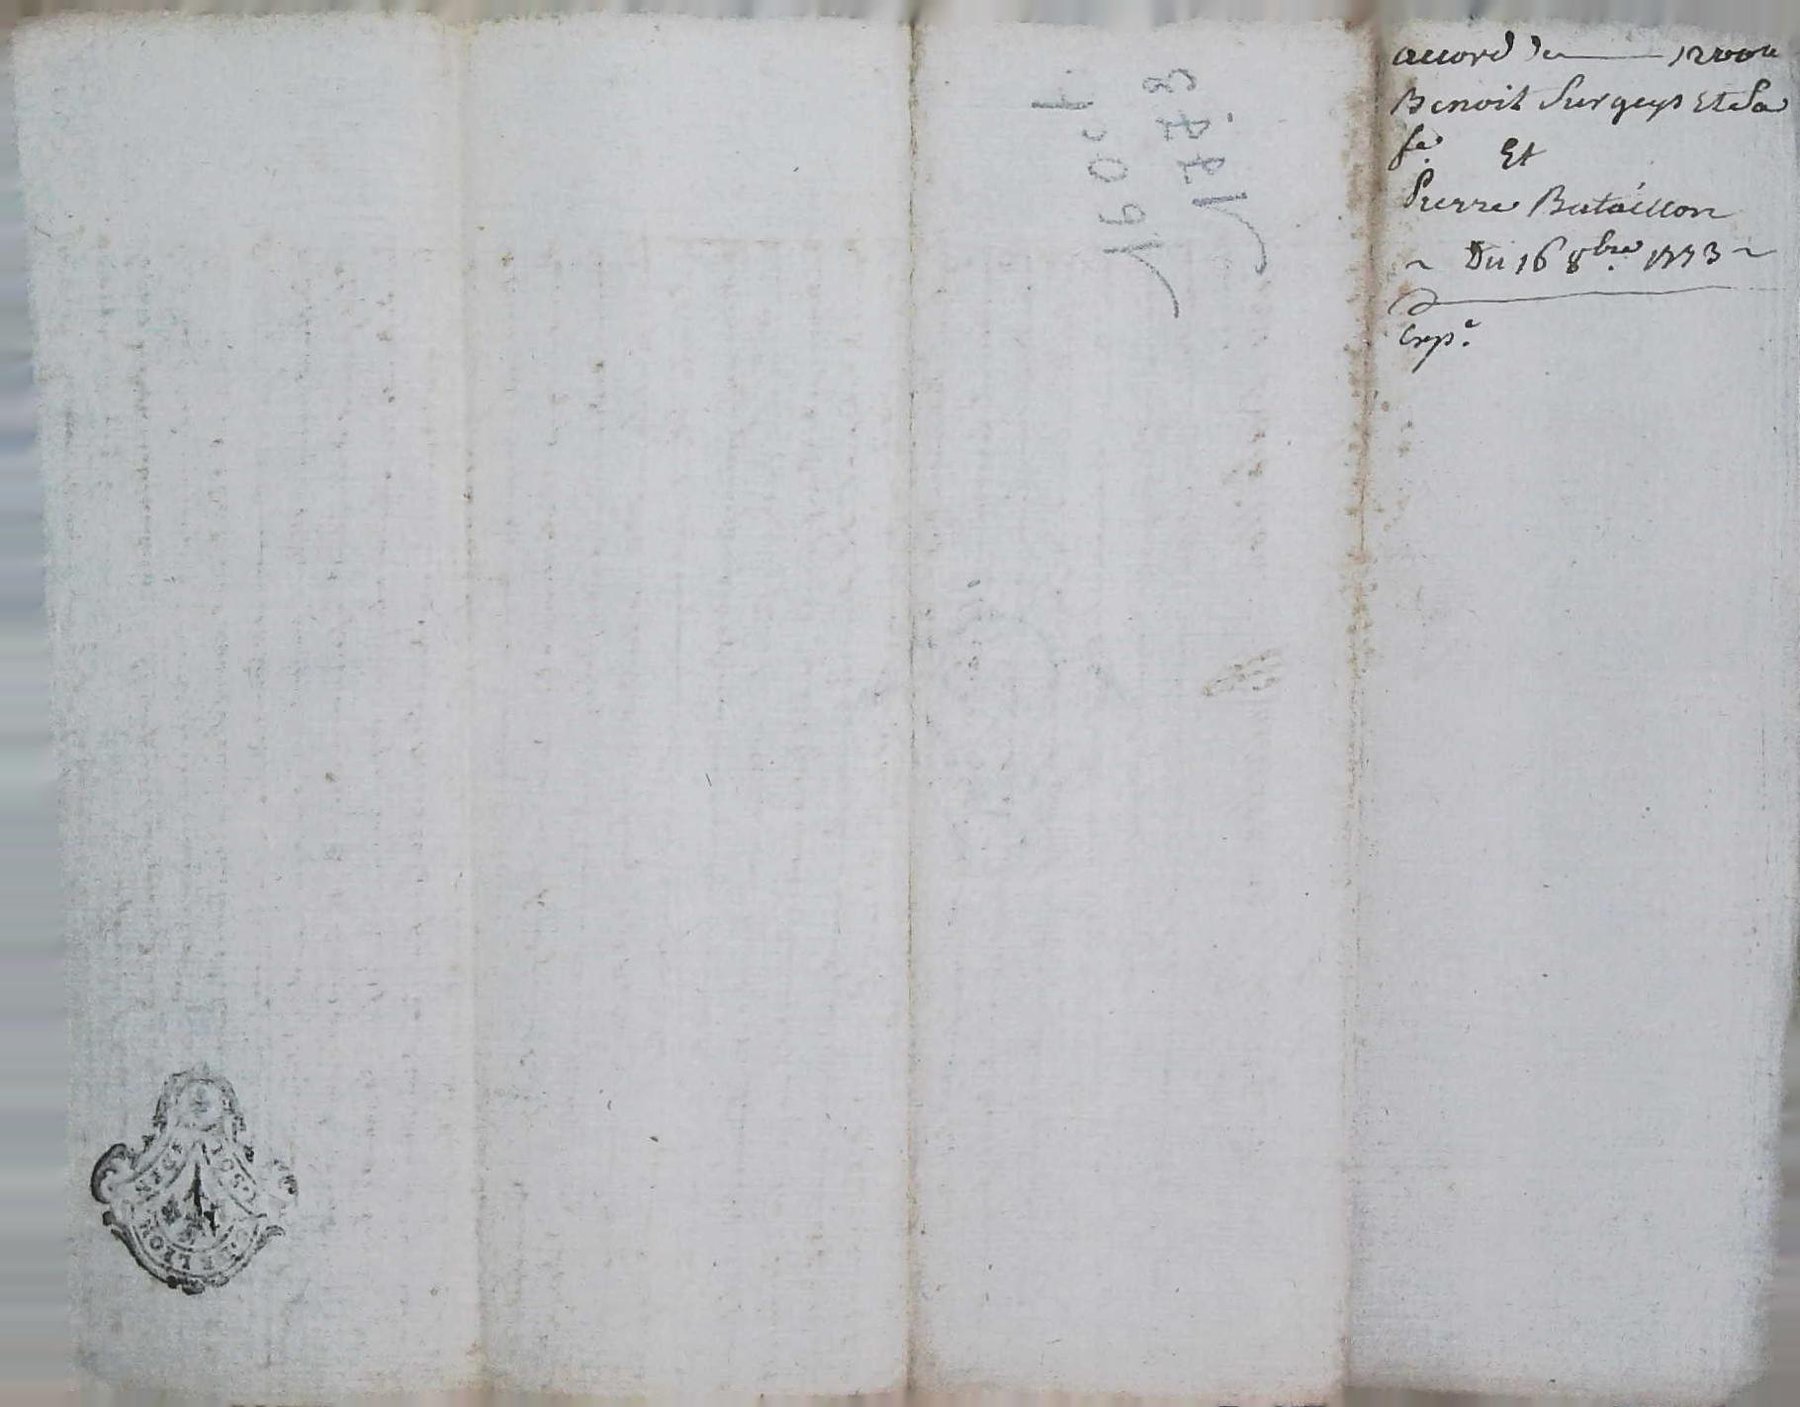 accord de ——— 1200#
Benoit Surgeys Et Sa
fe. Et
Pierre Bataillon
~ Du 16 8bre. 1773 ~
Exp.e
1773
16 oct